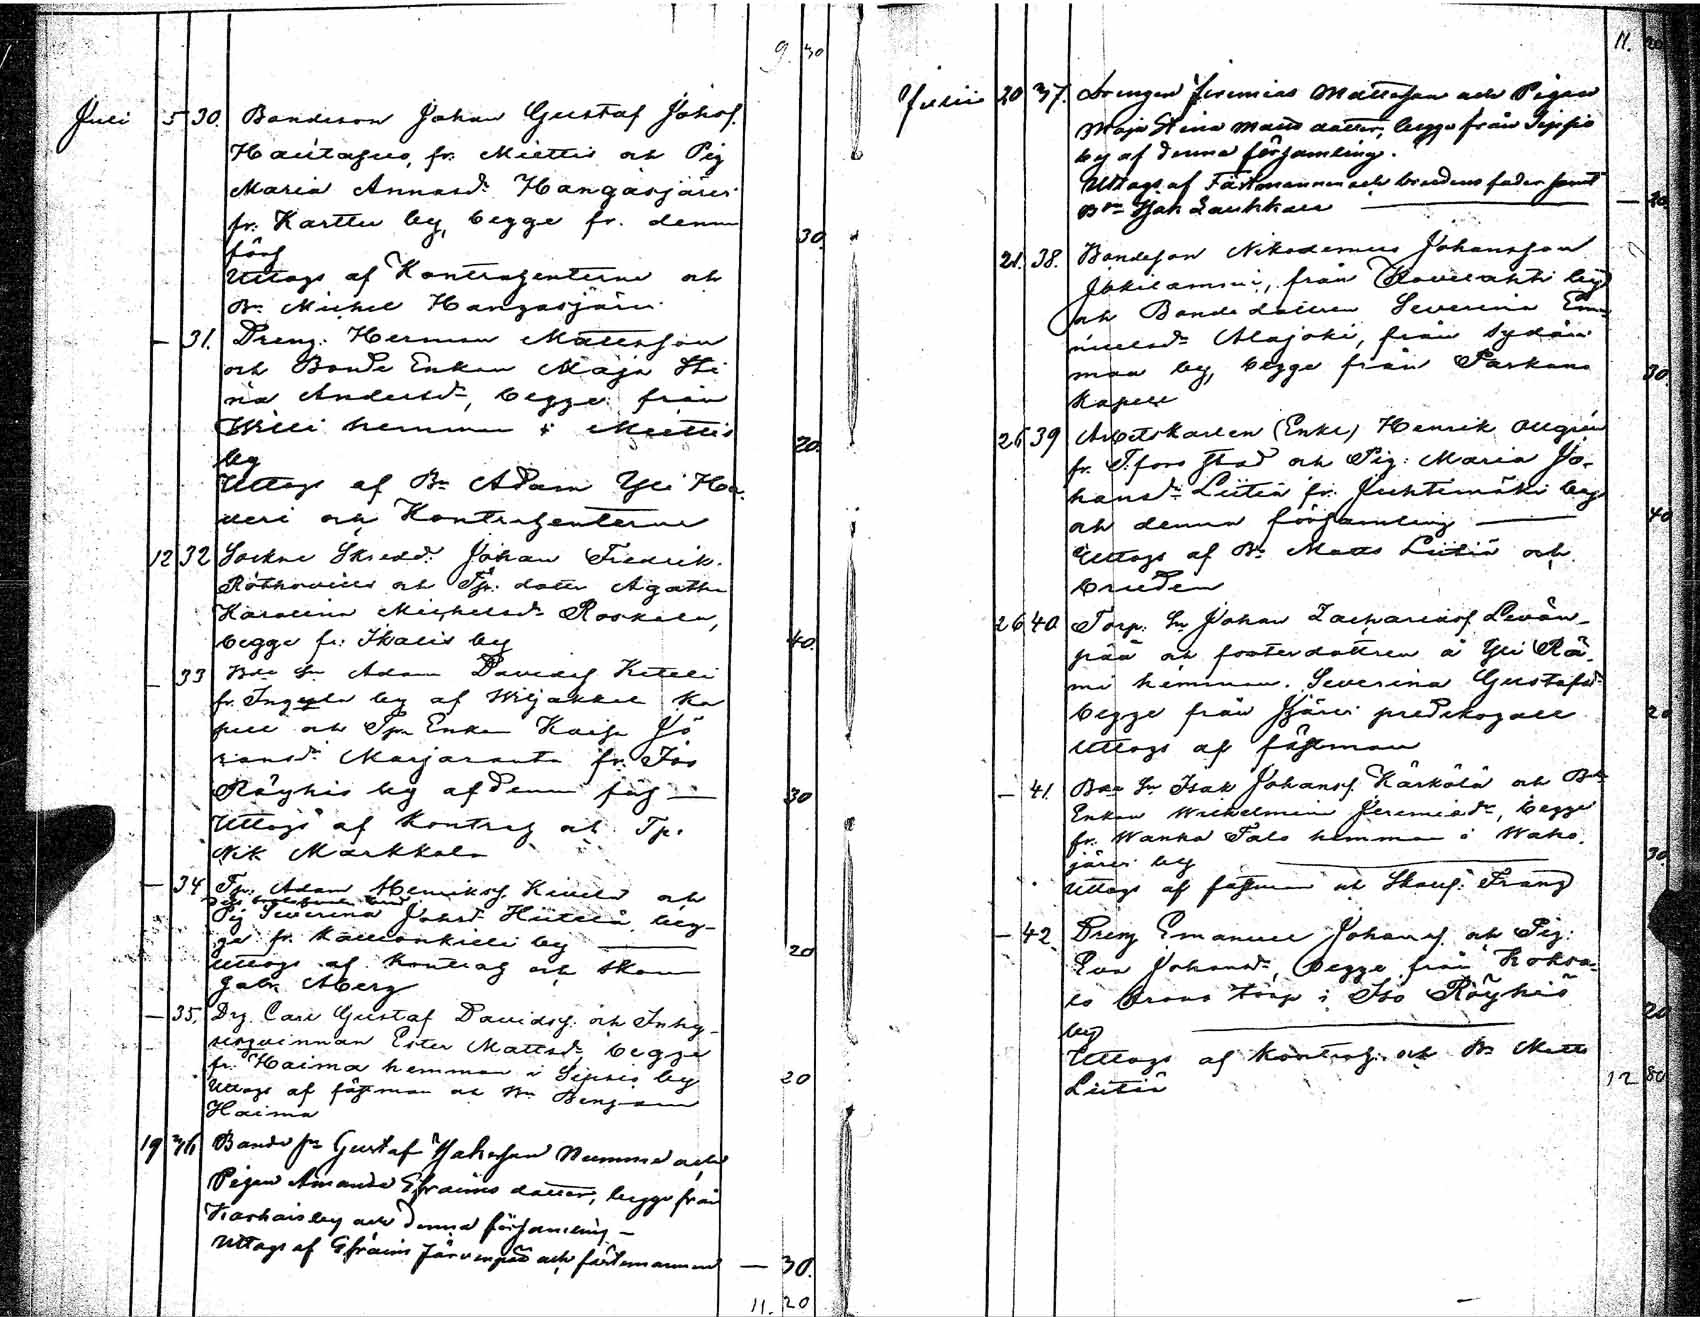 9. 40
Juli 5 30. Bondeson Johan Gustaf Johsf.
fr. Miettis och Pig
Maria Annasd:r Hangasjärvi
fr. Karttu by, begge fr. denna 30.
förs
Uttogs af Kontrahenterne och
Bn Michel Hangasjärvi
— 31. Dreng: Herman Mattsson
och Bonde Enkan Maja Sti
na Andersd:r, begge från
hemman i Miettis 20.
by
Uttogs af Bn Adam Yli Ha-
veri och Kontrahenterne
12 32 Sockne Skredd: Johan Fredrik
och Tp: dotter Agatha
Karolina Michelsd:r Roskala,
begge fr: Ikalis by 40.
— 33 Bde Sn Adam Davidsf Keteli
fr. Ingvala by af Wiljakkal ka
pell och Tpr Enkan Kaisa Jö
ransd:r Marjaranta fr. Iso
Röyhis by af denna förs — 30
Uttogs af Kontrah och Tp.
Nik Markkola
— 34 Tpr. Adam Henriksf Kivelä och
Pig Severina Johsd:r Hütelä beg-
ge fr. by — 20
Uttogs af Kontrah och Skom
Gabr. Åberg
— 35. Drg. Carl Gustaf Davidsf. och Inhy-
seqvinnan Ester Mattsd:r begge
fr. Haima hemman i Sipsis by 20
Uttogs af fästman och Bn Benjam
Haima
19 36 Bonde sn Gustaf Jakosson Numme och
Pigan Amanda Efraims dotter, begge från
by och denna församling —
Uttogs af Efraim Järvenpää och fästemannen — 30.
11. 20
11. 20
Julii 20 37. Drengen Jeremias Mattsson och Pigan
Maja Stina Matts dotter, begge från Sipsis
by af denna församling.
Uttogs af Fästmannen och brudens fader samt
Bn Isak Laukkala — 20
21. 38. Bondeson Nikodemus Johansson
från Kovelahti by
och Bonde dottren Severina Em-
nuelsd:r Alajoki, från Sydän
maa by, begge från Parkano 30.
Kapell
26 39 Arbetskarlen (Enkl) Henrik Allgrén
fr. T:fors stad och Pig: Maria Jo-
hansd:r Liitiä fr. Juhtimäki by
och denna församling — 40
Uttogs af Bn Matts Liitiä och
bruden
26 40 Torp: Sn Johan Zachariasf Levän-
pää och fosterdottren å Yli Rä-
mi hemman. Severina Gustafsd:r
begge från Jjärvi predikogäll 20
Uttogs af fästman
— 41. Bde Sn Isak Johansf. Kärkölä och Bde
Enkan Wilhelmina Jeremiasd:r, begge
fr. Wanha Talo hemman i Waho
järvi by — 30
Uttogs af fästman och Skauf: Franz
— 42. Dreng Emanuel Johansf. och Pig:
Eva Johansd:r, begge från Koksa-
torp i Iso Röyhiö 20
by —
Uttogs af Kontrah. och Bn Matts
Liitiä 12 80